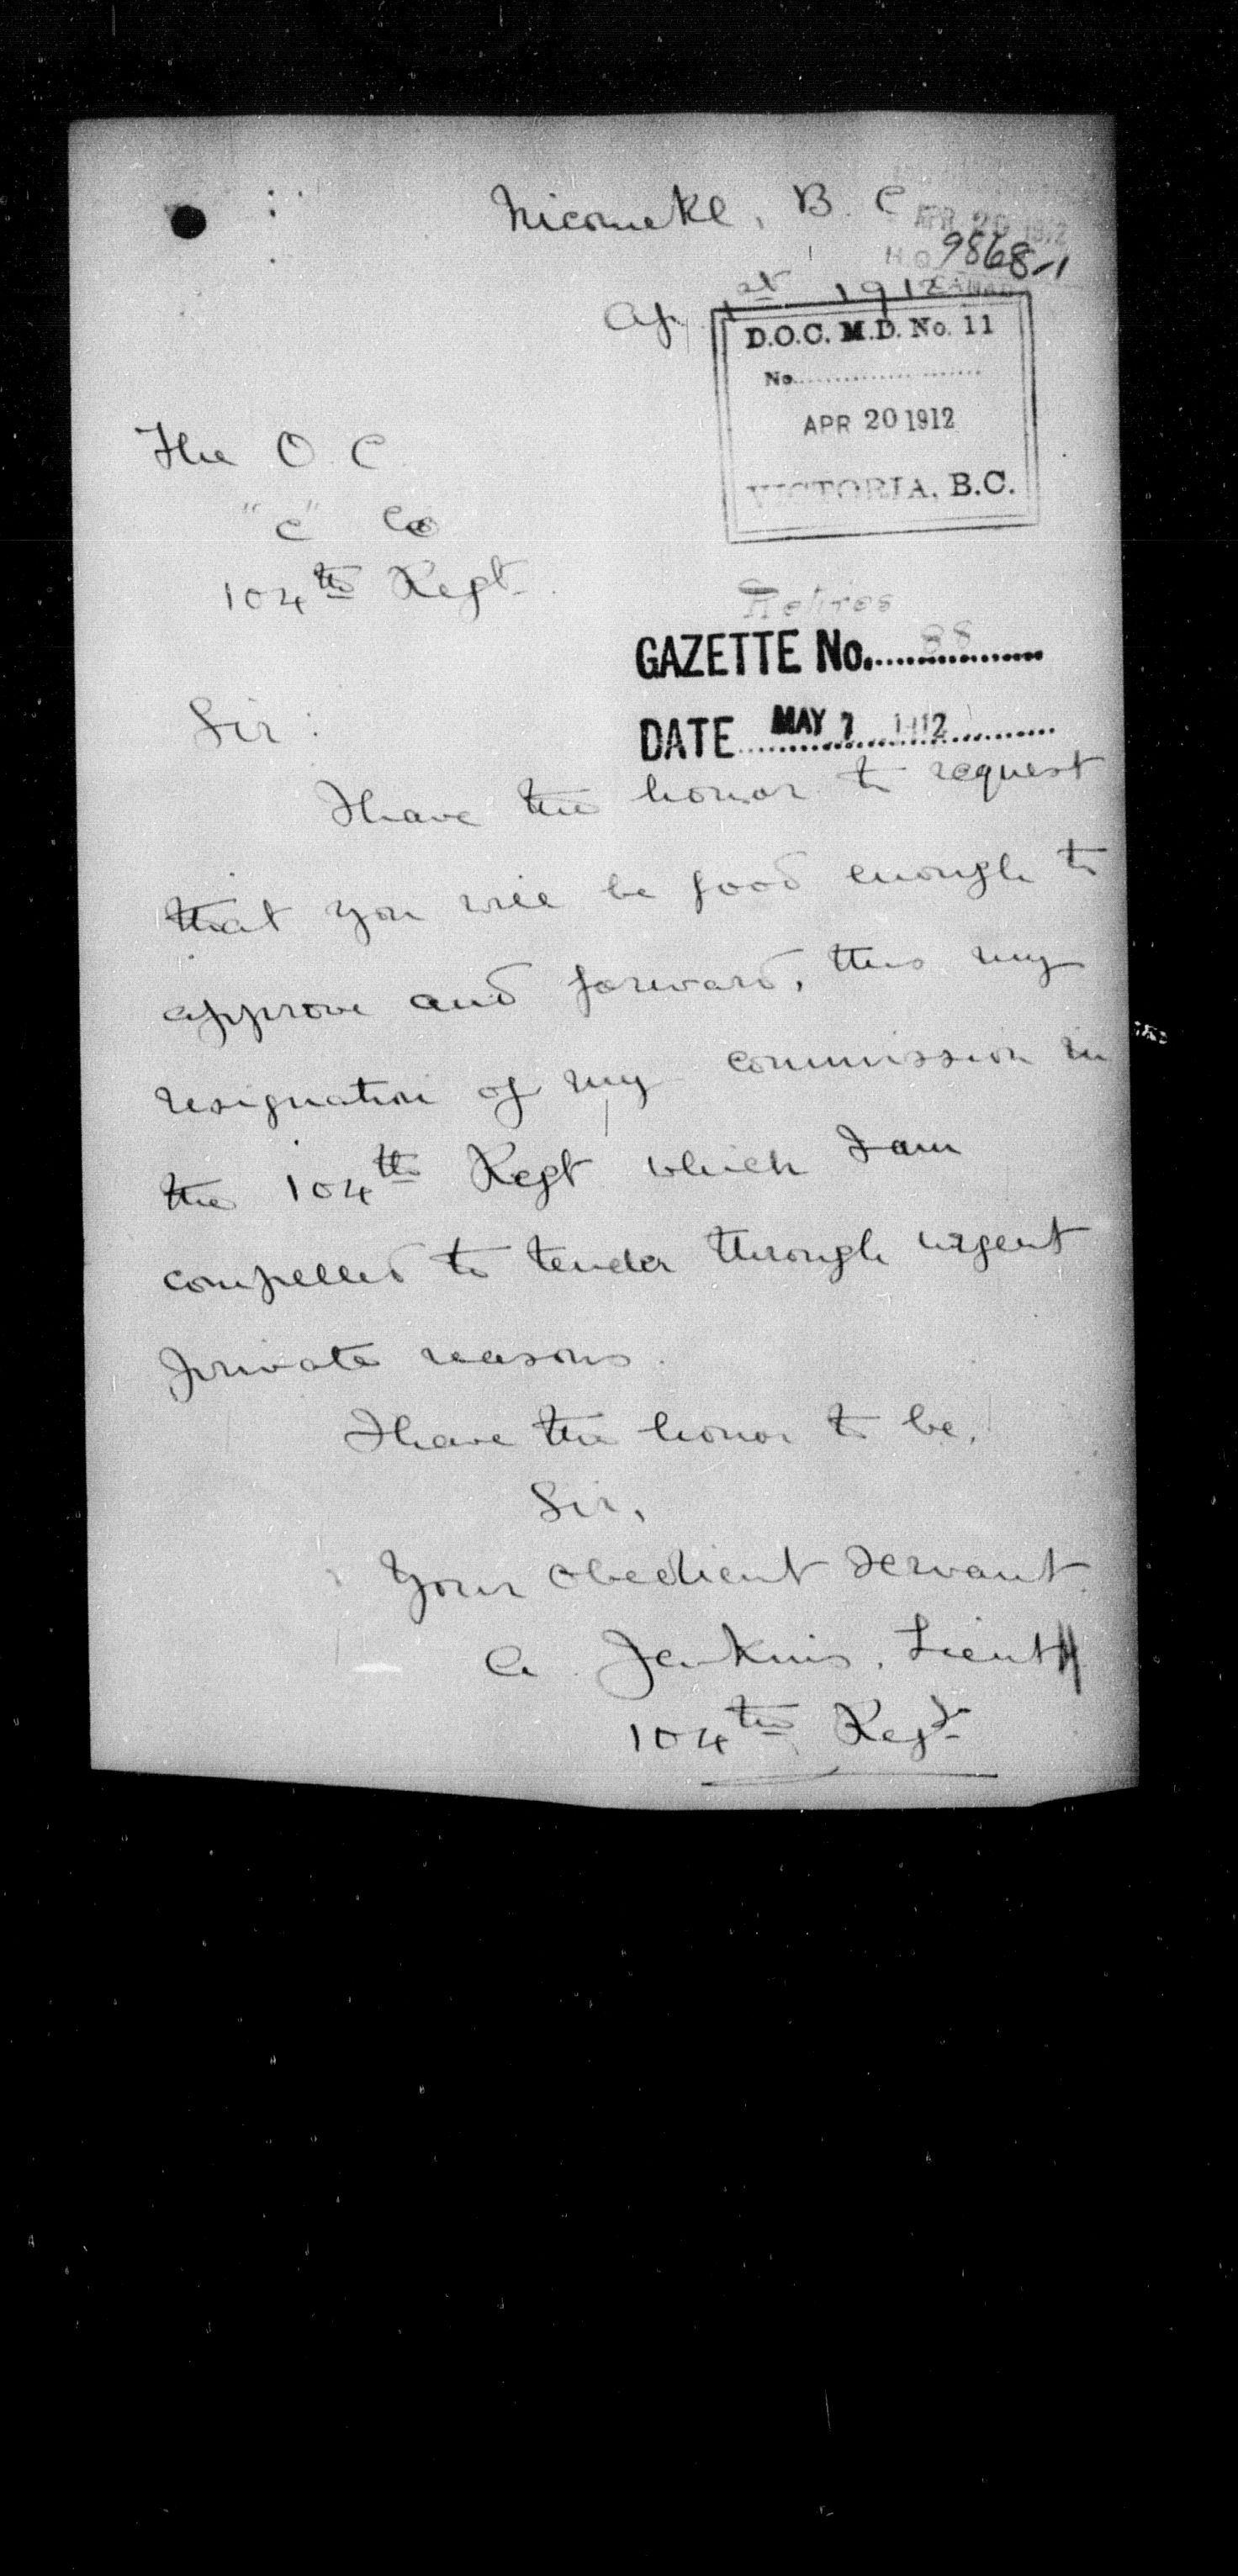 Nicomekl, B. C
APR 20 1912
H Q 9868-1
CANADA
Ap. 1st 1912
D.O.C. M.D. No. 11
No.
APR 20 1912
VICTORIA, B.C.
The O. C.
"C" Co
104th Regt.
Retires
GAZETTE No. 88
DATE MAY 7 1912
Sir:
I have the honor to request
that you will be good enough to
approve and forward, this my
resignation of my commission in
the 104th Regt which I am
compelled to tender through urgent
private reasons.
I have the honor to be,
Sir,
Your obedient servant
A. Jenkins, Lieut
104th Regt